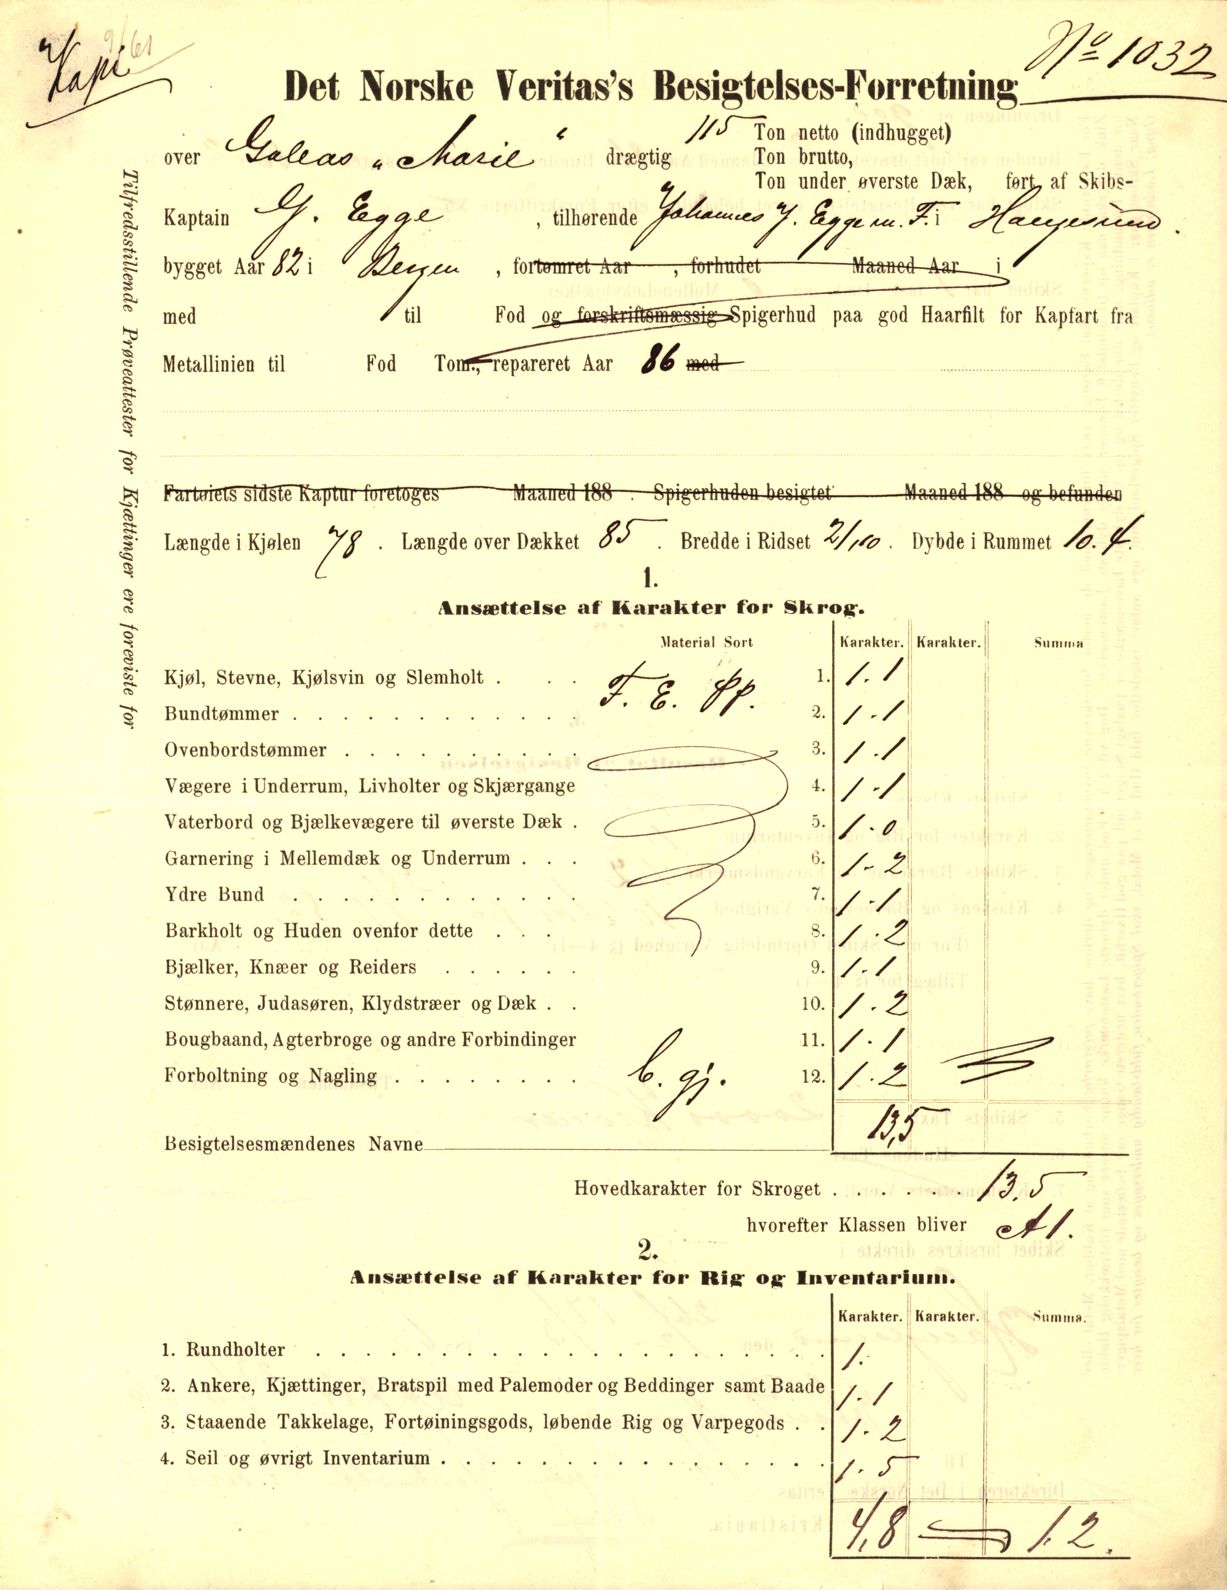 Kopi
9/61
No 1032
Det Norske Veritas's Besigtelses-Forretning
over Galeas „Marie“ drægtig 115 Ton netto (indhugget)
Ton brutto,
Ton under øverste Dæk, ført af Skibs-
Kaptain G. Egge, tilhørende Johannes J. Egge m. F. i Haugesund.
bygget Aar 82 i Bergen, fortømret Aar , forhudet Maaned Aar i
med til Fod og forskriftsmæssig Spigerhud paa god Haarfilt for Kapfart fra
Metallinien til Fod Tom., repareret Aar 86 med
Fartøiets sidste Kaptur foretoges Maaned 188 . Spigerhuden besigtet Maaned 188 og befunden
Længde i Kjølen 78. Længde over Dækket 85. Bredde i Ridset 21,10. Dybde i Rummet 10.4.
1.
Ansættelse af Karakter for Skrog.
Material Sort Karakter. Karakter. Summa
Kjøl, Stevne, Kjølsvin og Slemholt . . . F. E. PP. 1. 1.1
Bundtømmer . . . . . . . . . . . . 2. 1.1
Ovenbordstømmer . . . . . . . . . . 3. 1.1
Vægere i Underrum, Livholter og Skjærgange 4. 1.1
Vaterbord og Bjælkevægere til øverste Dæk . 5. 1.0
Garnering i Mellemdæk og Underrum . . . 6. 1.2
Ydre Bund . . . . . . . . . . . . 7. 1.1
Barkholt og Huden ovenfor dette . . . 8. 1.2
Bjælker, Knæer og Reiders . . . . . . 9. 1.1
Stønnere, Judasøren, Klydstræer og Dæk . . 10. 1.2
Bougbaand, Agterbroge og andre Forbindinger 11. 1.1
Forboltning og Nagling . . . . . . . . C. gj. 12. 1.2
13,5
Besigtelsesmændenes Navne
Hovedkarakter for Skroget . . . . . . 13.5
hvorefter Klassen bliver A1.
2.
Ansættelse af Karakter for Rig og Inventarium.
Karakter. Karakter. Summa.
1. Rundholter . . . . . . . . . . . . 1.
2. Ankere, Kjættinger, Bratspil med Palemoder og Beddinger samt Baade 1.1
3. Staaende Takkelage, Fortøiningsgods, løbende Rig og Varpegods . . 1.2
4. Seil og øvrigt Inventarium . . . . . . . . . . . . 1.5
4,8 1.2.
Tilfredsstillende Prøveattester for Kjættinger ere foreviste for